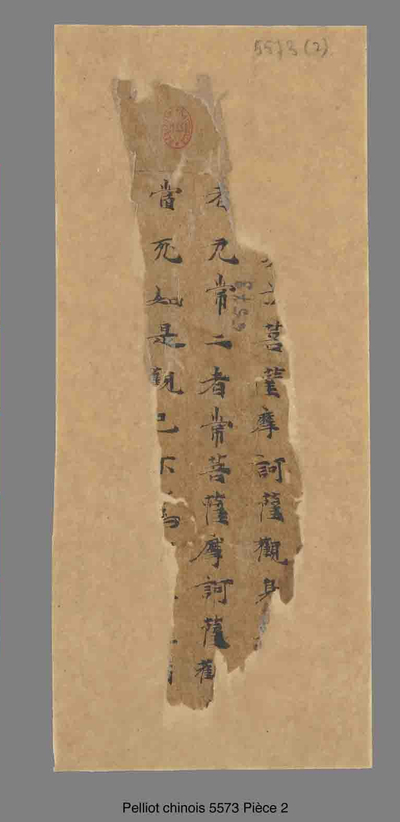 5573 (2)
菩薩摩訶薩觀身
无常二者常菩薩摩訶薩觀
當死如是觀已不為
5573
Pelliot chinois 5573 Pièce 2